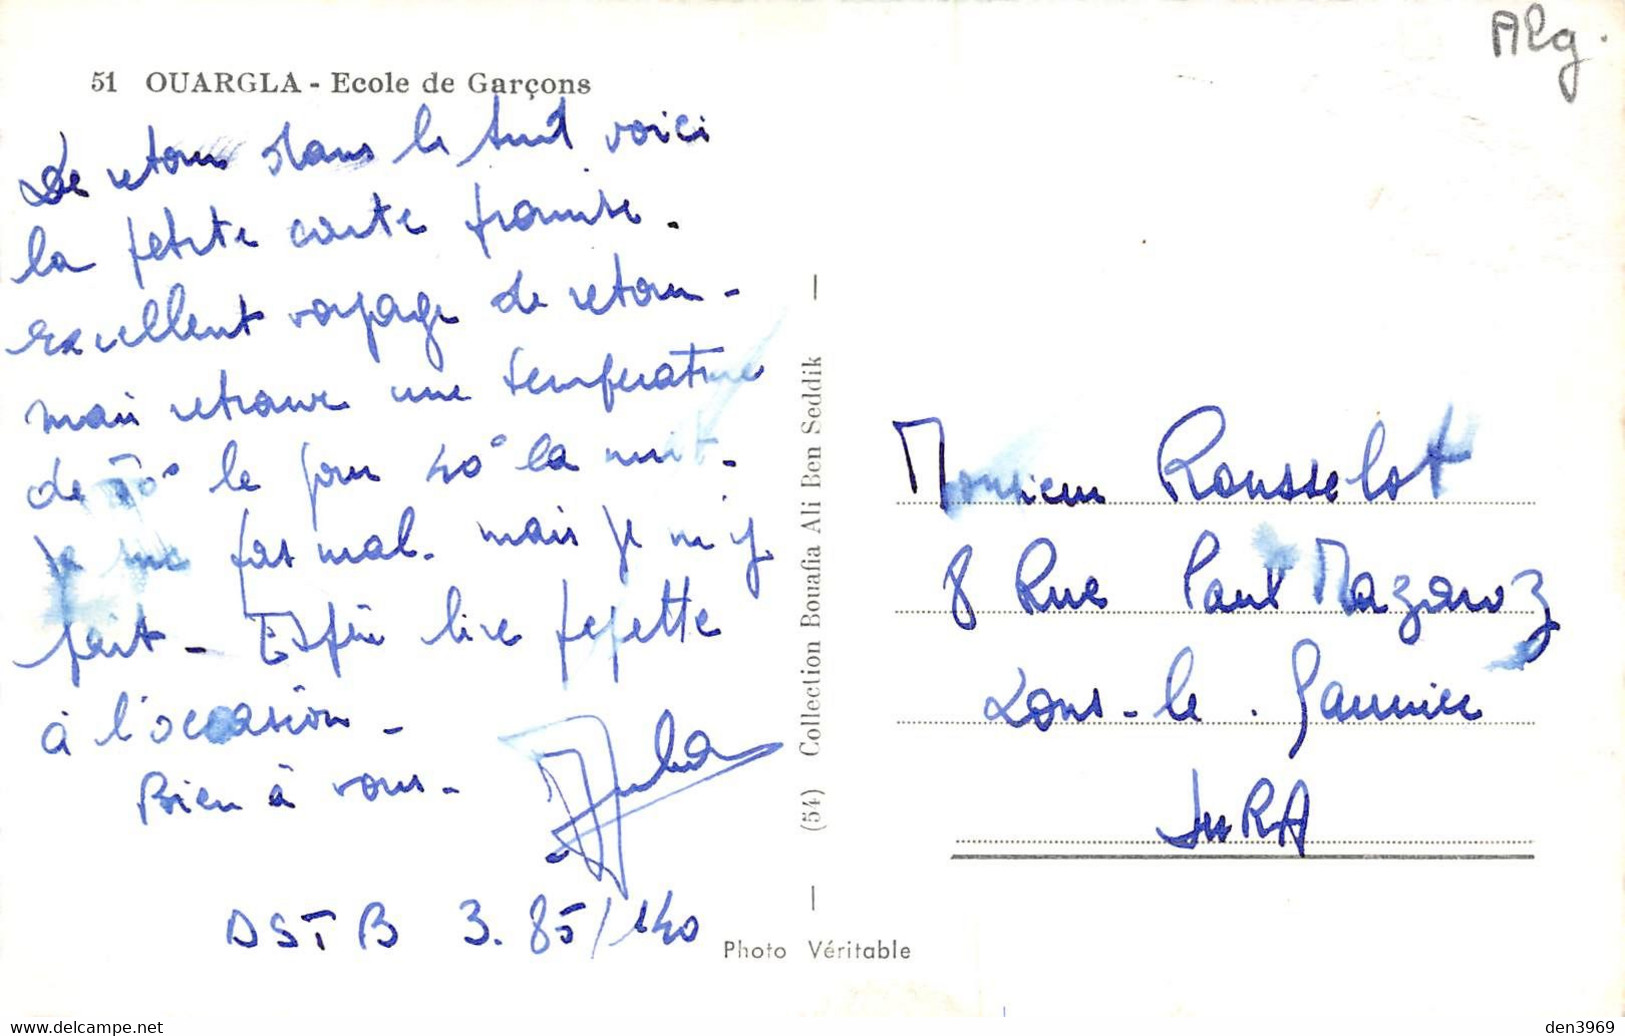 Alg.
51 OUARGLA - Ecole de Garçons
De retour dans le sud voici
la petite carte promise.
Excellent voyage de retour -
mais retrouve une temperature
de 50° le jour 40° la nuit -
Je me pas mal. mais je m'y
fait - Espère lire pepette
à l'occasion -
Bien à vous -
DSTB 3.85/140
(54) Collection Bouafia Ali Ben Seddik
Photo Véritable
Monsieur Rousselot
8 Rue Paul Mazaroz
Lons-le-Saunier
JURA
den3969